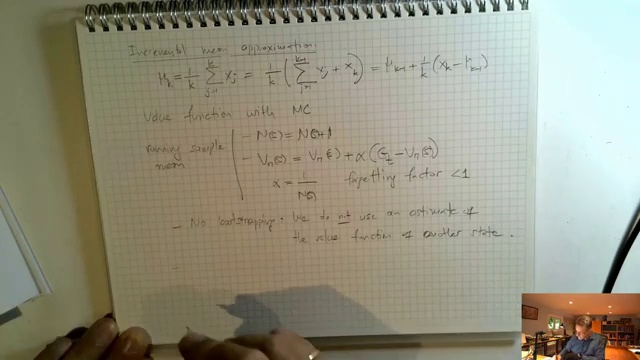 Incremental mean approximation:
μ_k = 1/k ∑_{j=1}^{k} x_j = 1/k ( ∑_{j=1}^{k-1} x_j + x_k ) = μ_{k-1} + 1/k (x_k − μ_{k-1})
Value function with MC
running sample mean
− N(s) = N(s)+1
− V_π(s) = V_π(s) + α (G_t − V_π(s))
α = 1/N(s) forgetting factor <1
− No bootstrapping: We do not use an estimate of
the value function of another state.